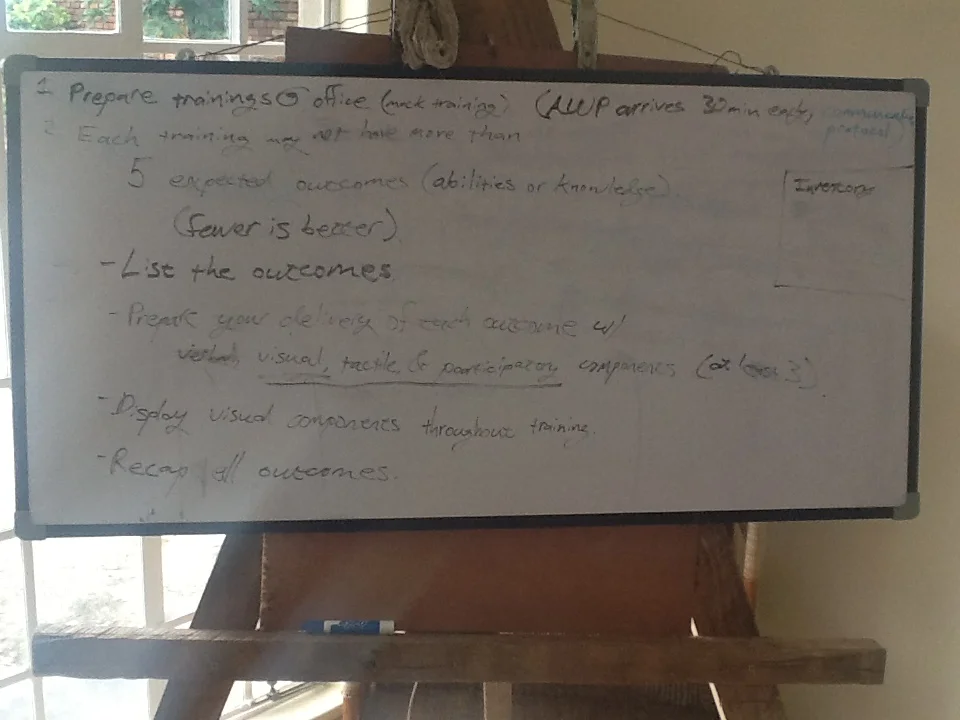 1 Prepare trainings @ office (mock training) (AWP arrives 30min early, communicate
protocol)
2 Each training may not have more than
5 expected outcomes (abilities or knowledge)
Inventory
(fewer is better)
- List the outcomes
- Prepare your delivery of each outcome w/
verbal, visual, tactile, & participatory components (at least 3)
- Display visual components throughout training.
- Recap all outcomes.